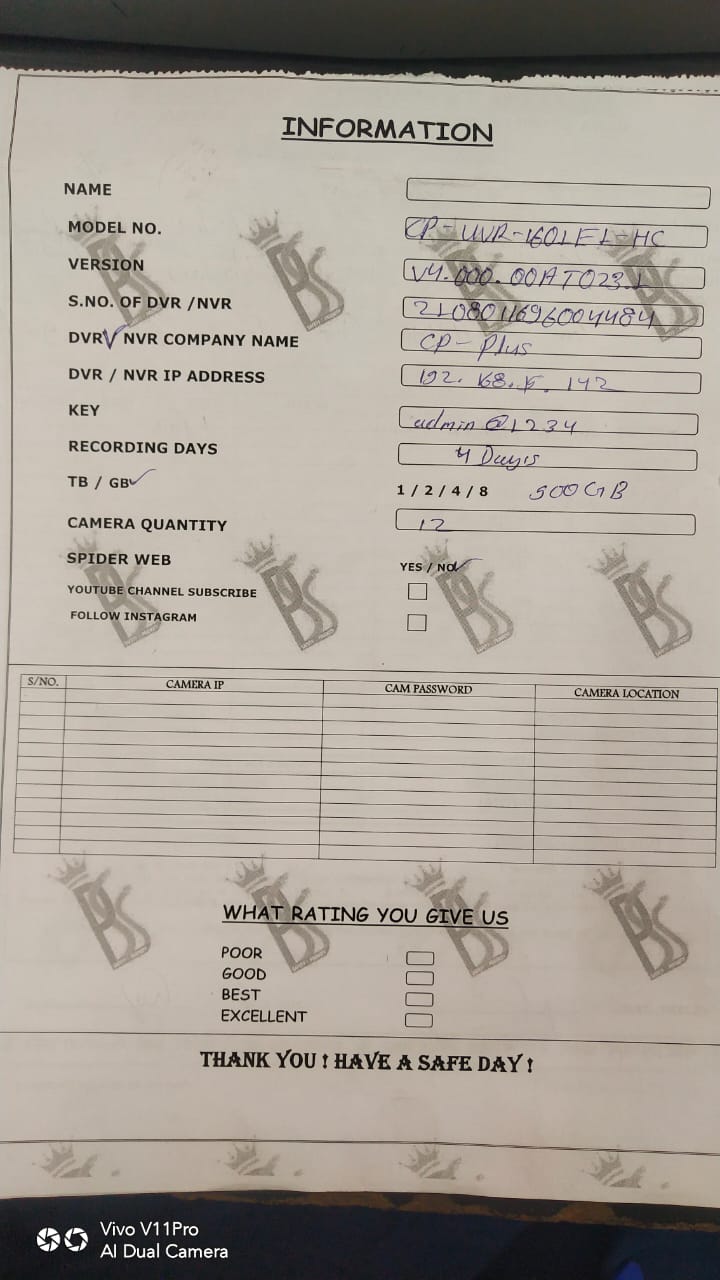 INFORMATION
NAME
MODEL NO. CP-UVR-1601E1-HC
VERSION V4.000.00AT023.1
S.NO. OF DVR /NVR
DVR / NVR COMPANY NAME CP-Plus
DVR / NVR IP ADDRESS
KEY admin@1234
RECORDING DAYS 4 Days
TB / GB 1 / 2 / 4 / 8 500 GB
CAMERA QUANTITY 12
SPIDER WEB YES / NO
YOUTUBE CHANNEL SUBSCRIBE
FOLLOW INSTAGRAM
S/NO. CAMERA IP CAM PASSWORD CAMERA LOCATION
WHAT RATING YOU GIVE US
POOR
GOOD
BEST
EXCELLENT
THANK YOU ! HAVE A SAFE DAY !
Vivo V11Pro
AI Dual Camera